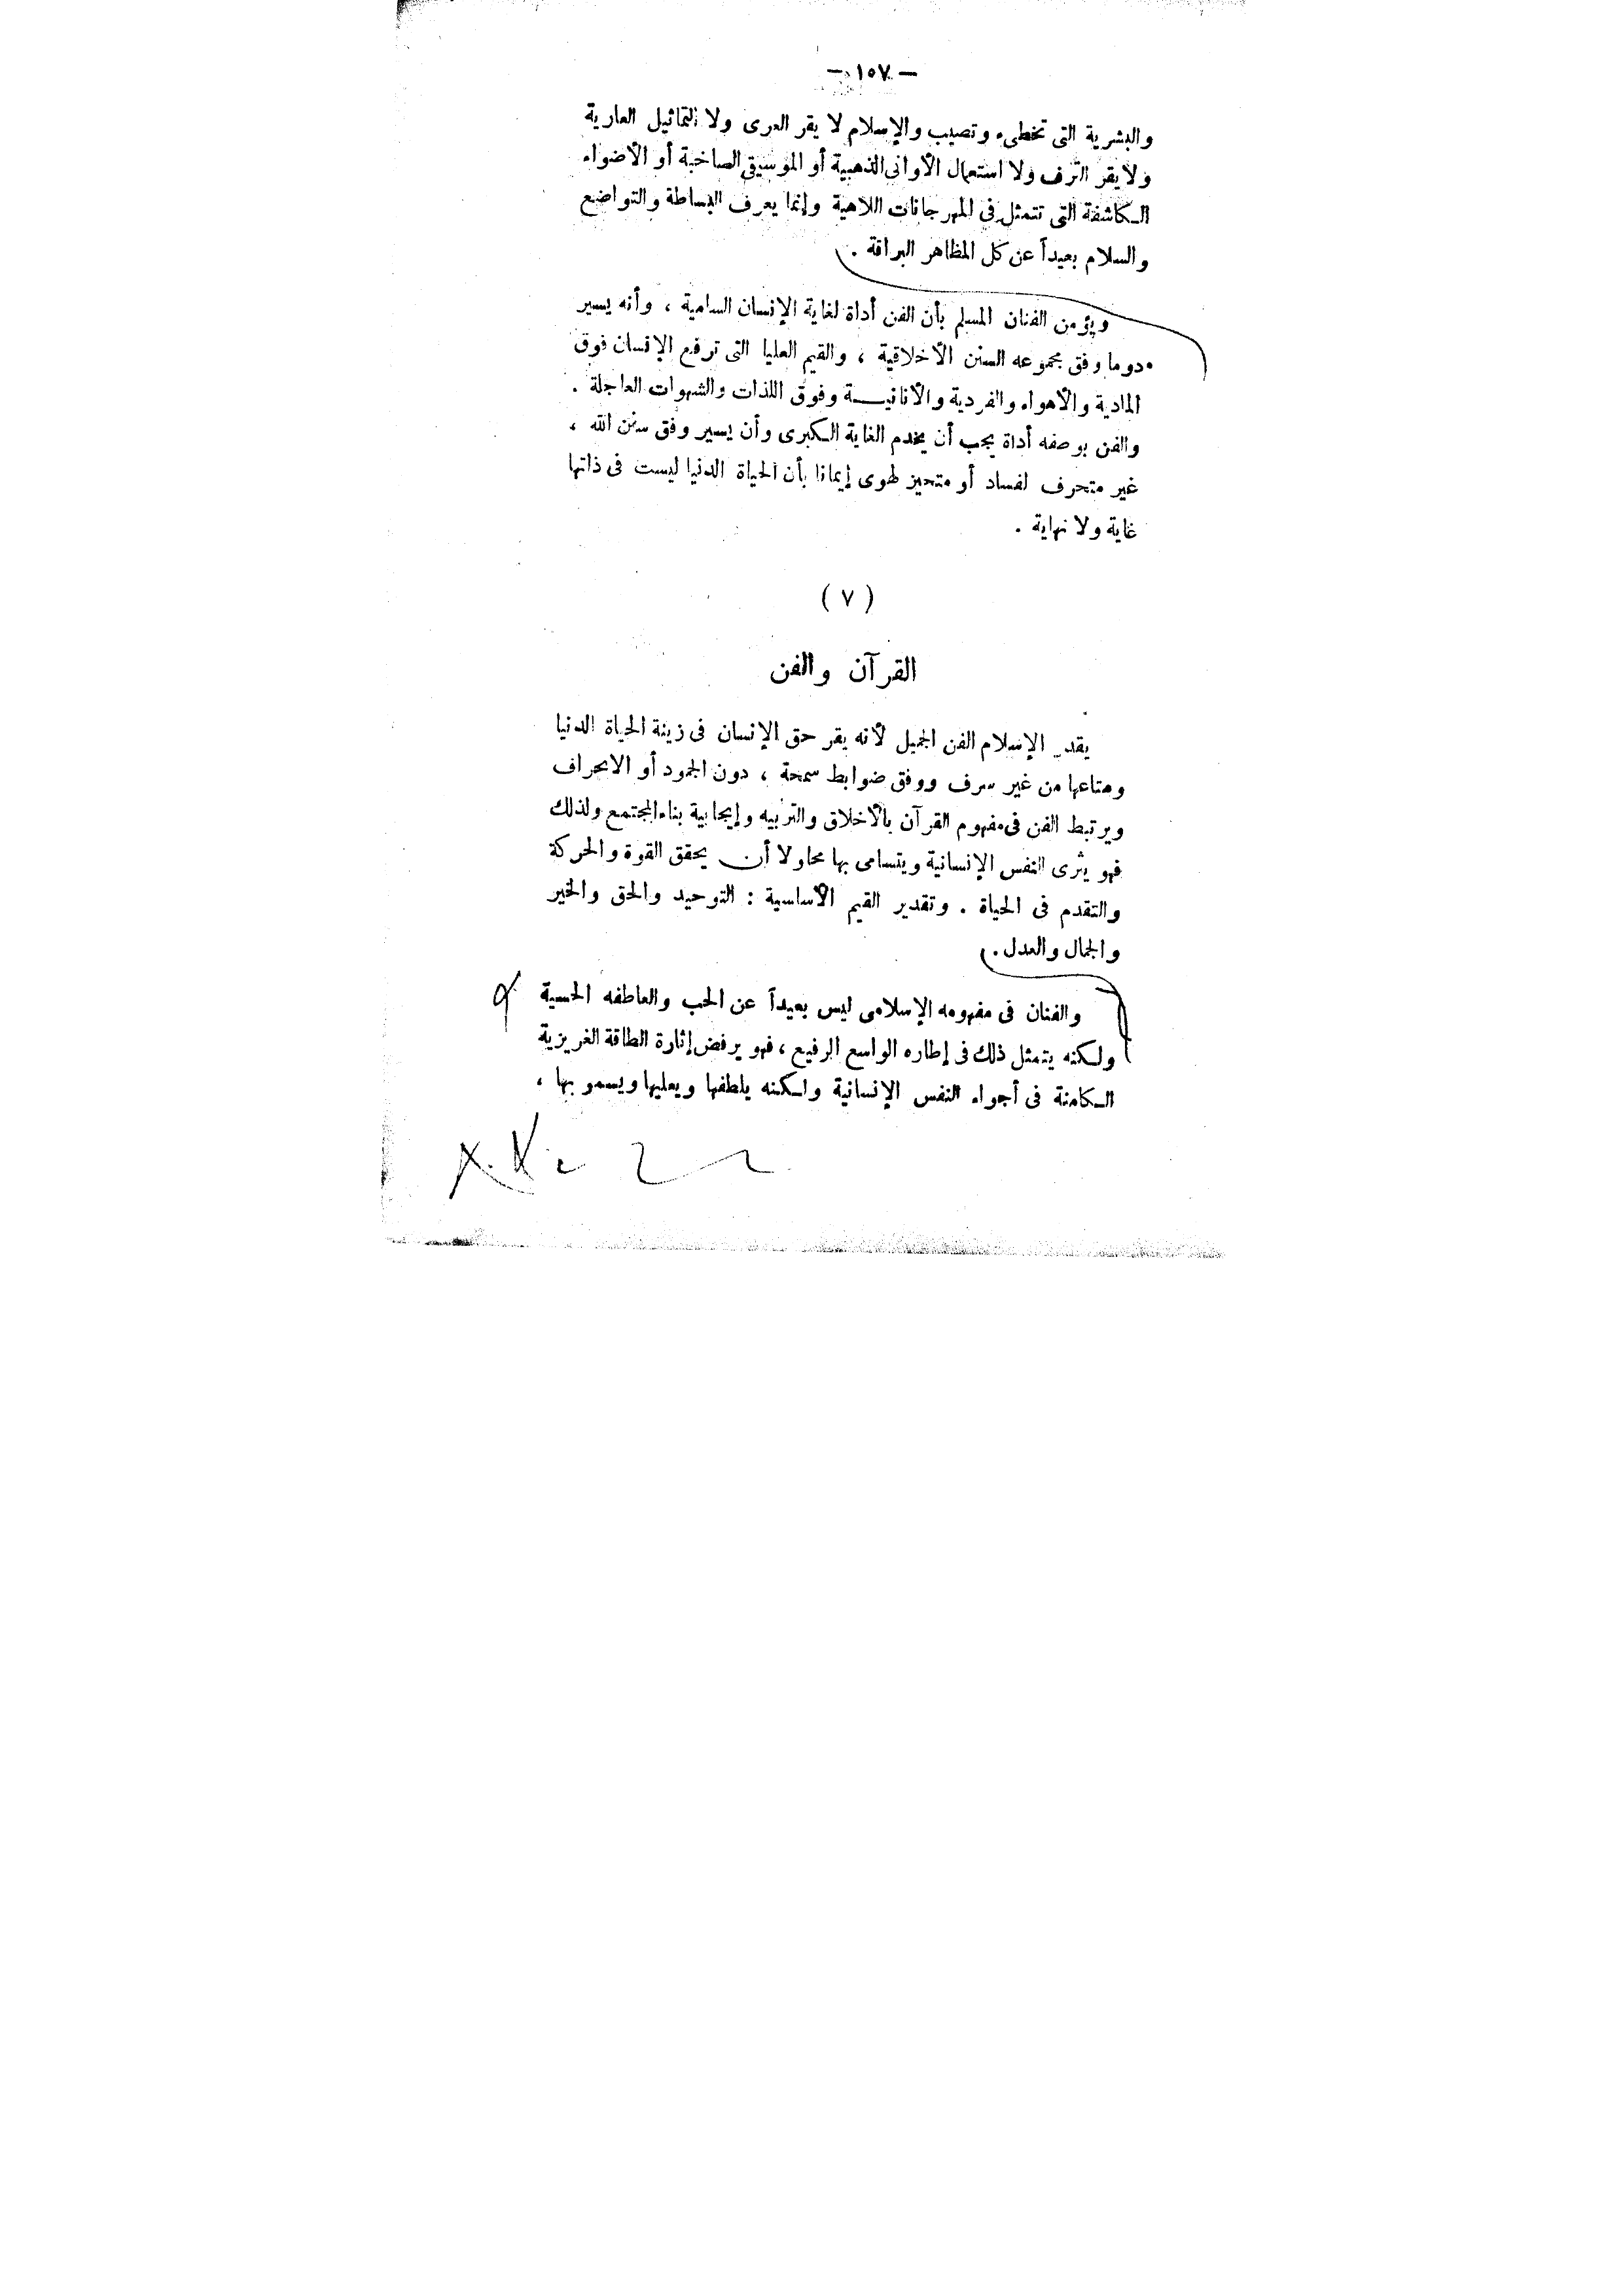 — ١٥٧ —
والبشرية التى تخطىء وتصيب والإسلام لا يقر العرى ولا التماثيل العارية
ولا يقر الترف ولا استعمال الأوانى الذهبية أو الموسيقى الصاخبة أو الأضواء
الكاشفة التى تتمثل فى المهرجانات اللاهية وإنما يعرف البساطة والتواضع
والسلام بعيداً عن كل المظاهر البراقة .
ويؤمن الفنان المسلم بأن الفن أداة لغاية الإنسان السامية ، وأنه يسير
دوما وفق مجموعه السنن الأخلاقية ، والقيم العليا التى ترفع الإنسان فوق
المادية والأهواء والفردية والأنانيـــة وفوق اللذات والشهوات العاجلة .
والفن بوصفه أداة يجب أن يخدم الغاية الكبرى وأن يسير وفق سنن الله ،
غير متحرف لفساد أو متحيز لهوى إيمانا بأن الحياة الدنيا ليست فى ذاتها
غاية ولا نهاية .
( ٧ )
القرآن والفن
يقدر الإسلام الفن الجميل لأنه يقر حق الإنسان فى زينة الحياة الدنيا
ومتاعها من غير سرف ووفق ضوابط سمحة ، دون الجمود أو الانحراف
ويرتبط الفن فى مفهوم القرآن بالأخلاق والتربيه وإيجابية بناء المجتمع ولذلك
فهو يثرى النفس الإنسانية ويتسامى بها محاولا أن يحقق القوة والحركة
والتقدم فى الحياة . وتقدير القيم الأساسية : التوحيد والحق والخير
والجمال والعدل .
والفنان فى مفهومه الإسلامى ليس بعيداً عن الحب والعاطفه الحسية
ولكنه يتمثل ذلك فى إطاره الواسع الرفيع ، فهو يرفض إثارة الطاقة الغريزية
الكامنة فى أجواء النفس الإنسانية ولكنه يلطفها ويعليها ويسمو بها ،